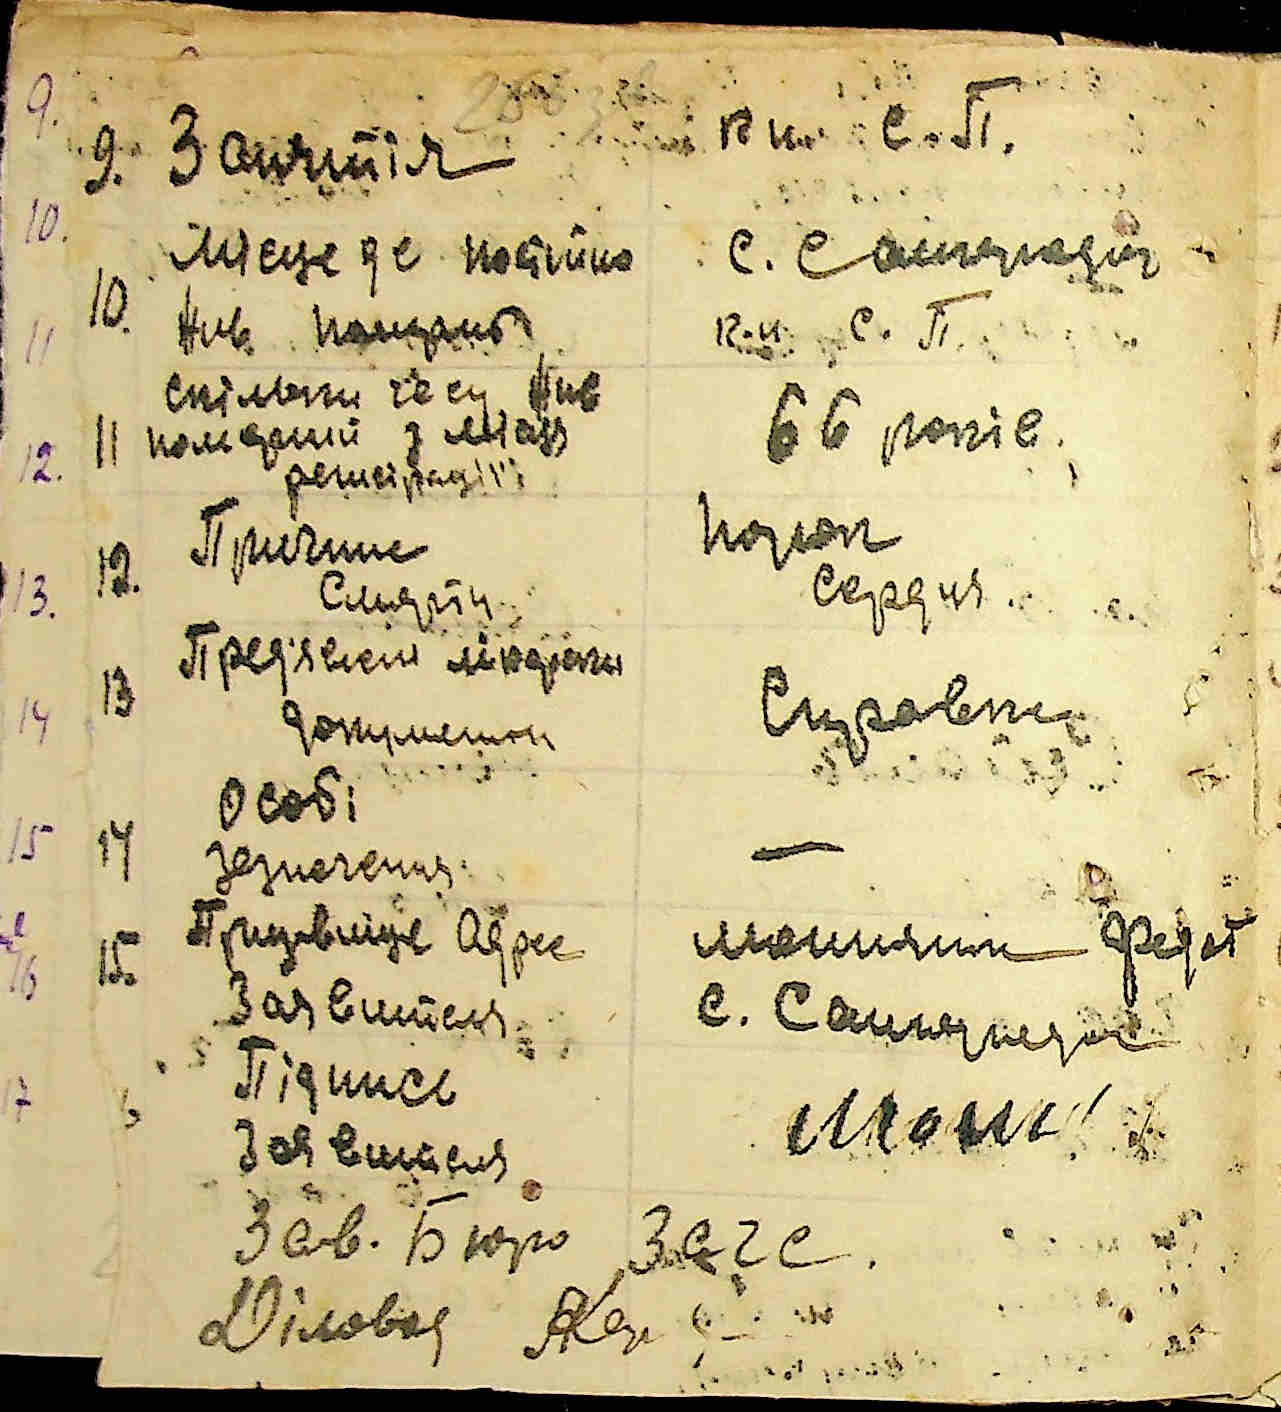 9. Заняття кн. С.П.
Місце де постійно с.
10. Жив померший к.н С. П.
Скільки часу Жив
11 померший з місця 66 років.
регистрації
12. Причина порок
Смерти Сердця.
13 Пред'явлені лікарськи
документи Справка
Особі
14 зазначення —
15. Призвище Адрес Федот
Заявителя с.
Підпись
Заявителя
Зав. Бюро Загс.
Діловод
9.
10.
11
12.
13.
14
15
16
17